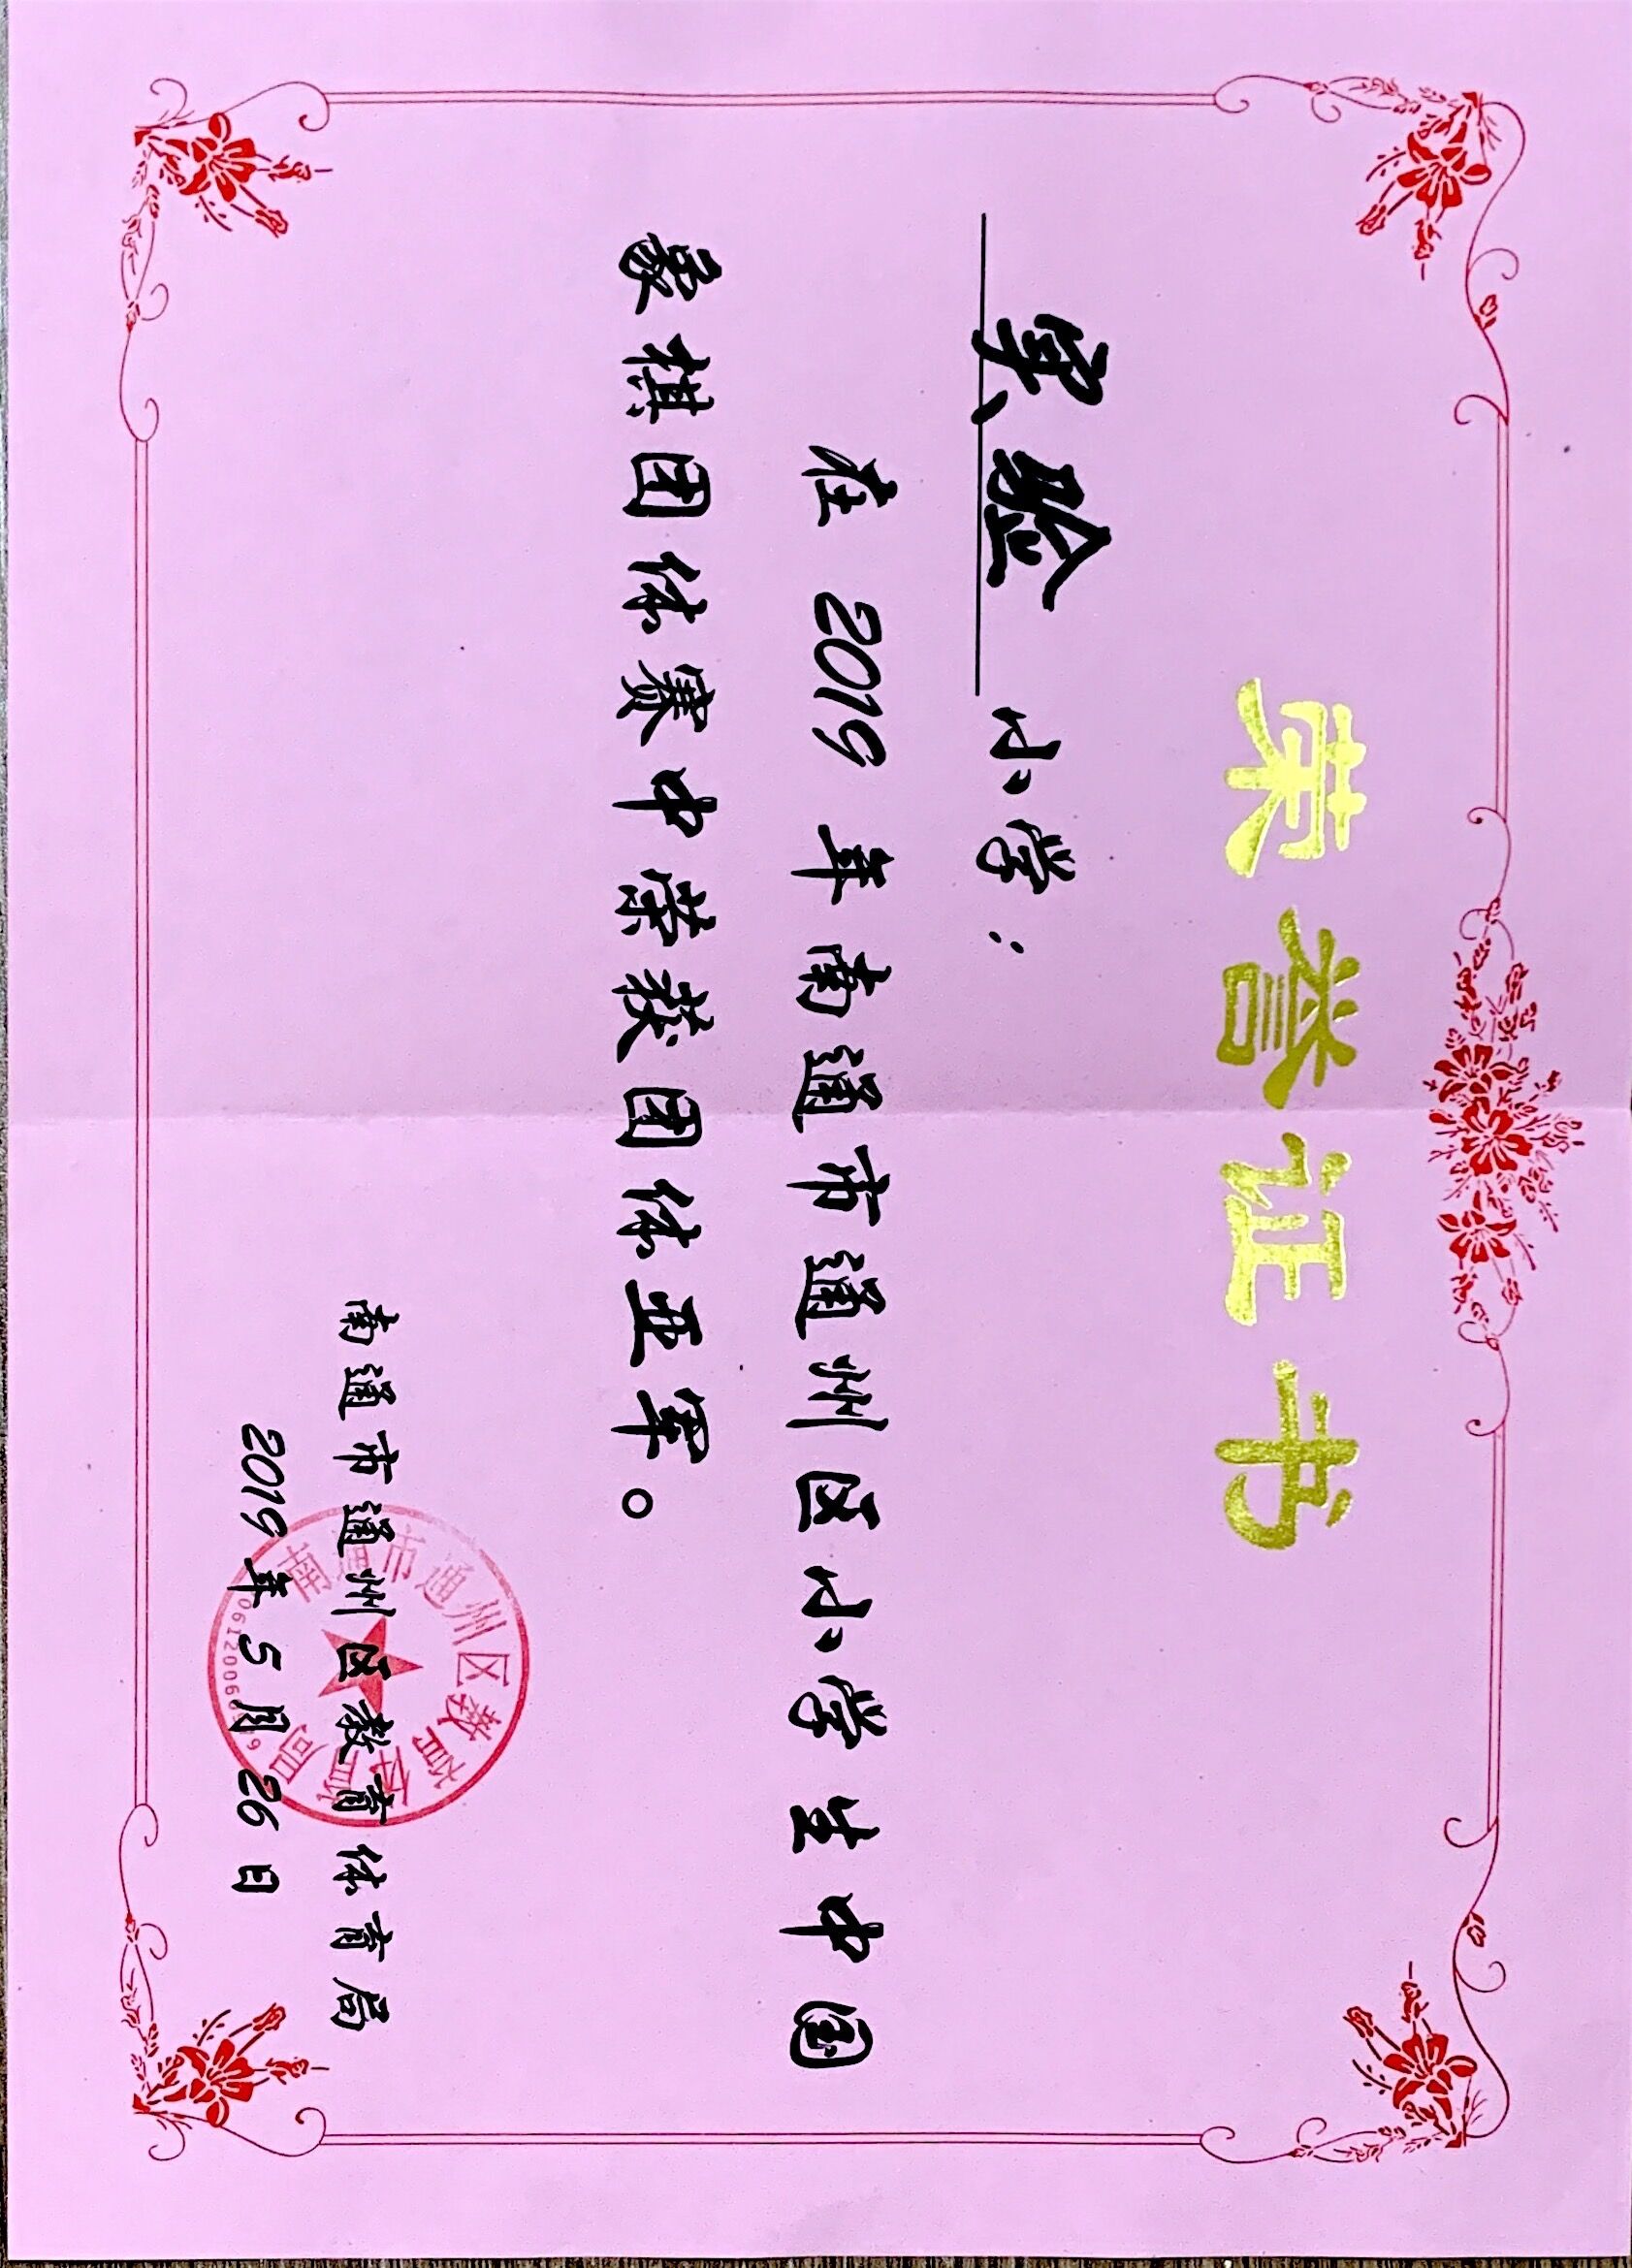 荣誉证书
实验小学：
在2019年南通市通州区小学生中国
象棋团体赛中荣获团体亚军。
南通市通州区教育体育局
2019年5月26日
南通市通州区教育体育局